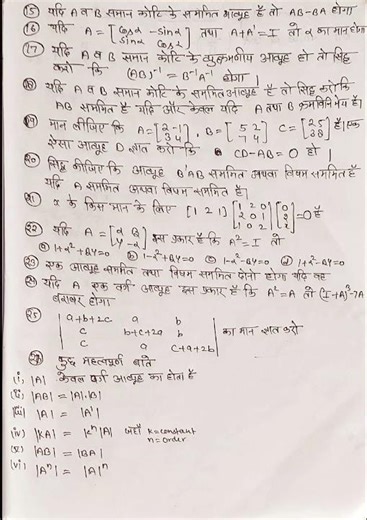 (15) यदि A व B समान कोटि के सममित आव्यूह है तो AB-BA होगा
(16) यदि A = [cosα -sinα sinα cosα] तथा A+A' = I तो α का मान होगा
(17) यदि A व B समान कोटि के व्युत्क्रमणीय आव्यूह हो तो सिद्ध
करो कि (AB)⁻¹ = B⁻¹A⁻¹ होगा |
(18) यदि A व B समान कोटि के सममित आव्यूह है तो सिद्ध करो कि
AB सममित है यदि और केवल यदि A तथा B क्रमविनिमेय है।
(19) मान लीजिए कि A = [2 -1 3 4], B = [5 2 7 4] C = [2 5 3 8] है। एक
ऐसा आव्यूह D ज्ञात करो कि CD-AB = O हो |
(20) सिद्ध कीजिए कि आव्यूह B'AB सममित अथवा विषम सममित है
यदि A सममित अथवा विषम सममित है।
(21) x के किस मान के लिए [1 2 1] [1 2 0 2 0 1 1 0 2] [0 2 x] = 0 है
(22) यदि A = [α β γ -α] इस प्रकार है कि A² = I तो
(a) 1+α²+βγ=0 (b) 1-α²+βγ=0 (c) 1-α²-βγ=0 (d) 1+α²-βγ=0
(23) एक आव्यूह सममित तथा विषम सममित दोनो होगा यदि वह
(24) यदि A एक वर्ग आव्यूह इस प्रकार है कि A² = A तो (I+A)³-7A
बराबर होगा
(25) | a+b+2c a b
c b+c+2a b
c a c+a+2b | का मान ज्ञात करो
कुछ महत्वपूर्ण बाते
(i) |A| केवल वर्ग आव्यूह का होता है
(ii) |AB| = |A|.|B|
(iii) |A| = |A'|
(iv) |KA| = |Kⁿ|A| जहाँ K=constant
n=order
(v) |AB| = |BA|
(vi) |Aⁿ| = |A|ⁿ